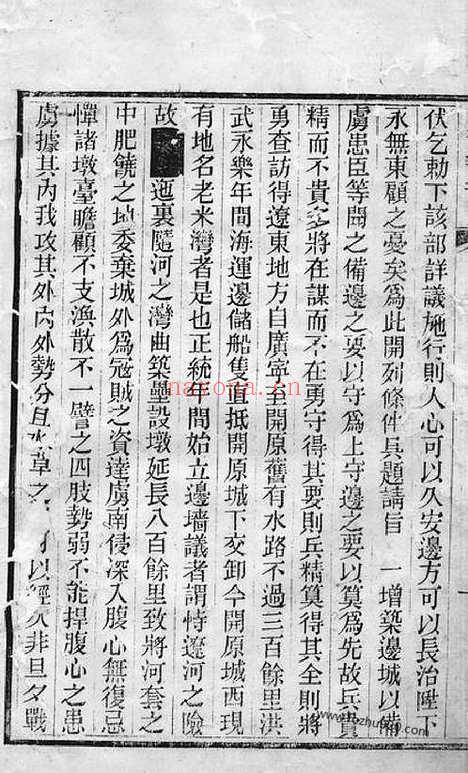 伏乞勅下該部詳議施行則人心可以久安邊方可以長治陛下
永無東顧之憂矣爲此開列條件具題請旨 一增築邊城以備
虜患臣等聞之備邊之要以守爲上守邊之要以算爲先故兵貴
精而不貴多將在謀而不在勇守得其要則兵精算得其全則將
勇查訪得遼東地方自廣寧至開原舊有水路不過三百餘里洪
武永樂年間海運邊儲船隻直抵開原城下交卸今開原城西現
有地名老米灣者是也正統年間始立邊墻議者謂恃遼河之險
故 迤裏隨河之灣曲築壘設墩延長八百餘里致將河套之
中肥饒之地委棄城外爲冦賊之資達虜南侵深入腹心無復忌
憚諸墩臺瞻顧不支渙散不一譬之四肢勢弱不能捍腹心之患
虜據其內我攻其外內外勢分且水草之 以經久非旦夕戰
nayona.cn
www.zhuoxuezhai.com